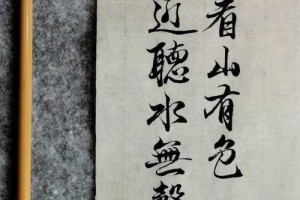 看山有色
近聽水無聲